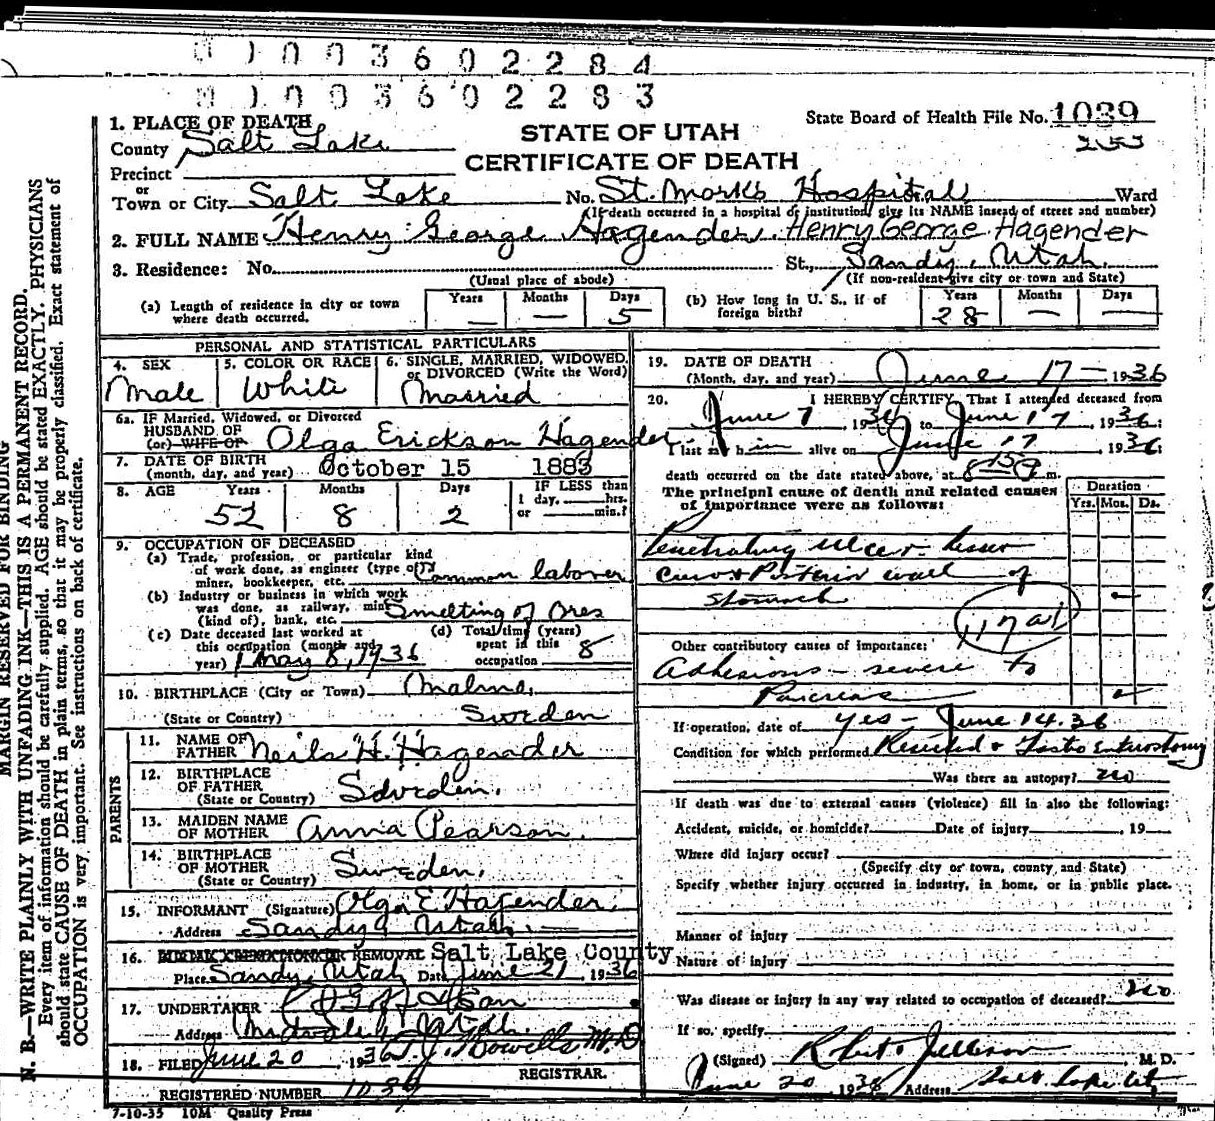 01003602284
01003602283
State Board of Health File No. 1039
253
STATE OF UTAH
CERTIFICATE OF DEATH
1. PLACE OF DEATH
County Salt Lake
Precinct
or
Town or City Salt Lake No. St. Mark's Hospital Ward
(If death occurred in a hospital or institution, give its NAME instead of street and number)
2. FULL NAME Henry George Hagender. Henry George Hagender
3. Residence: No. St., Sandy, Utah.
(Usual place of abode) (If non-resident give city or town and State)
(a) Length of residence in city or town where death occurred. Years — Months — Days 5
(b) How long in U. S., if of foreign birth? Years 28 Months — Days —
PERSONAL AND STATISTICAL PARTICULARS
4. SEX Male
5. COLOR OR RACE White
6. SINGLE, MARRIED, WIDOWED, or DIVORCED (Write the Word) Married
6a. IF Married, Widowed, or Divorced
HUSBAND OF
(or) WIFE OF Olga Erickson Hagender
7. DATE OF BIRTH
(month, day, and year) October 15 1883
8. AGE Years 52 Months 8 Days 2 IF LESS than 1 day, hrs. or min.?
9. OCCUPATION OF DECEASED
(a) Trade, profession, or particular kind
of work done, as engineer (type of)
miner, bookkeeper, etc. Common laborer
(b) Industry or business in which work
was done, as railway, mine
(kind of), bank, etc. Smelting of Ores
(c) Date deceased last worked at
this occupation (month and
year) May 8, 1936
(d) Total time (years)
spent in this
occupation 8
10. BIRTHPLACE (City or Town) Malmo,
(State or Country) Sweden
PARENTS
11. NAME OF FATHER Neils H. Hagender
12. BIRTHPLACE OF FATHER
(State or Country) Sweden.
13. MAIDEN NAME OF MOTHER Anna Pearson.
14. BIRTHPLACE OF MOTHER
(State or Country) Sweden.
15. INFORMANT (Signature) Olga E Hagender.
Address Sandy Utah.
16. REMOVAL Salt Lake County
Place Sandy, Utah Date June 21 1936
17. UNDERTAKER
Address Midvale, Utah.
18. FILED June 20, 1936 Howells M.D
REGISTRAR.
REGISTERED NUMBER 1039
7-10-35 10M Quality Press
19. DATE OF DEATH
(Month, day, and year) June 17 — 1936
20. I HEREBY CERTIFY, That I attended deceased from
June 7 1936 to June 17, 1936;
I last saw him alive on June 17 1936;
death occurred on the date stated above, at 8 15 P m.
The principal cause of death and related causes
of importance were as follows:
Duration
Yrs. Mos. Ds.
Penetrating ulcer lesser
curv + Posterior wall of
stomach
117a1
Other contributory causes of importance:
Adhesions - severe to
Pancreas
If operation, date of yes - June 14.36
Condition for which performed Resected + Gastro Enterostomy
Was there an autopsy? no
If death was due to external causes (violence) fill in also the following:
Accident, suicide, or homicide? Date of injury , 19
Where did injury occur?
(Specify city or town, county, and State)
Specify whether injury occurred in industry, in home, or in public place.
Manner of injury
Nature of injury
Was disease or injury in any way related to occupation of deceased? no
If so, specify
(Signed) M. D.
June 20 1936 Address Salt Lake City
MARGIN RESERVED FOR BINDING
N. B.—WRITE PLAINLY WITH UNFADING INK—THIS IS A PERMANENT RECORD.
Every item of information should be carefully supplied. AGE should be stated EXACTLY. PHYSICIANS
should state CAUSE OF DEATH in plain terms, so that it may be properly classified. Exact statement of
OCCUPATION is very important. See instructions on back of certificate.